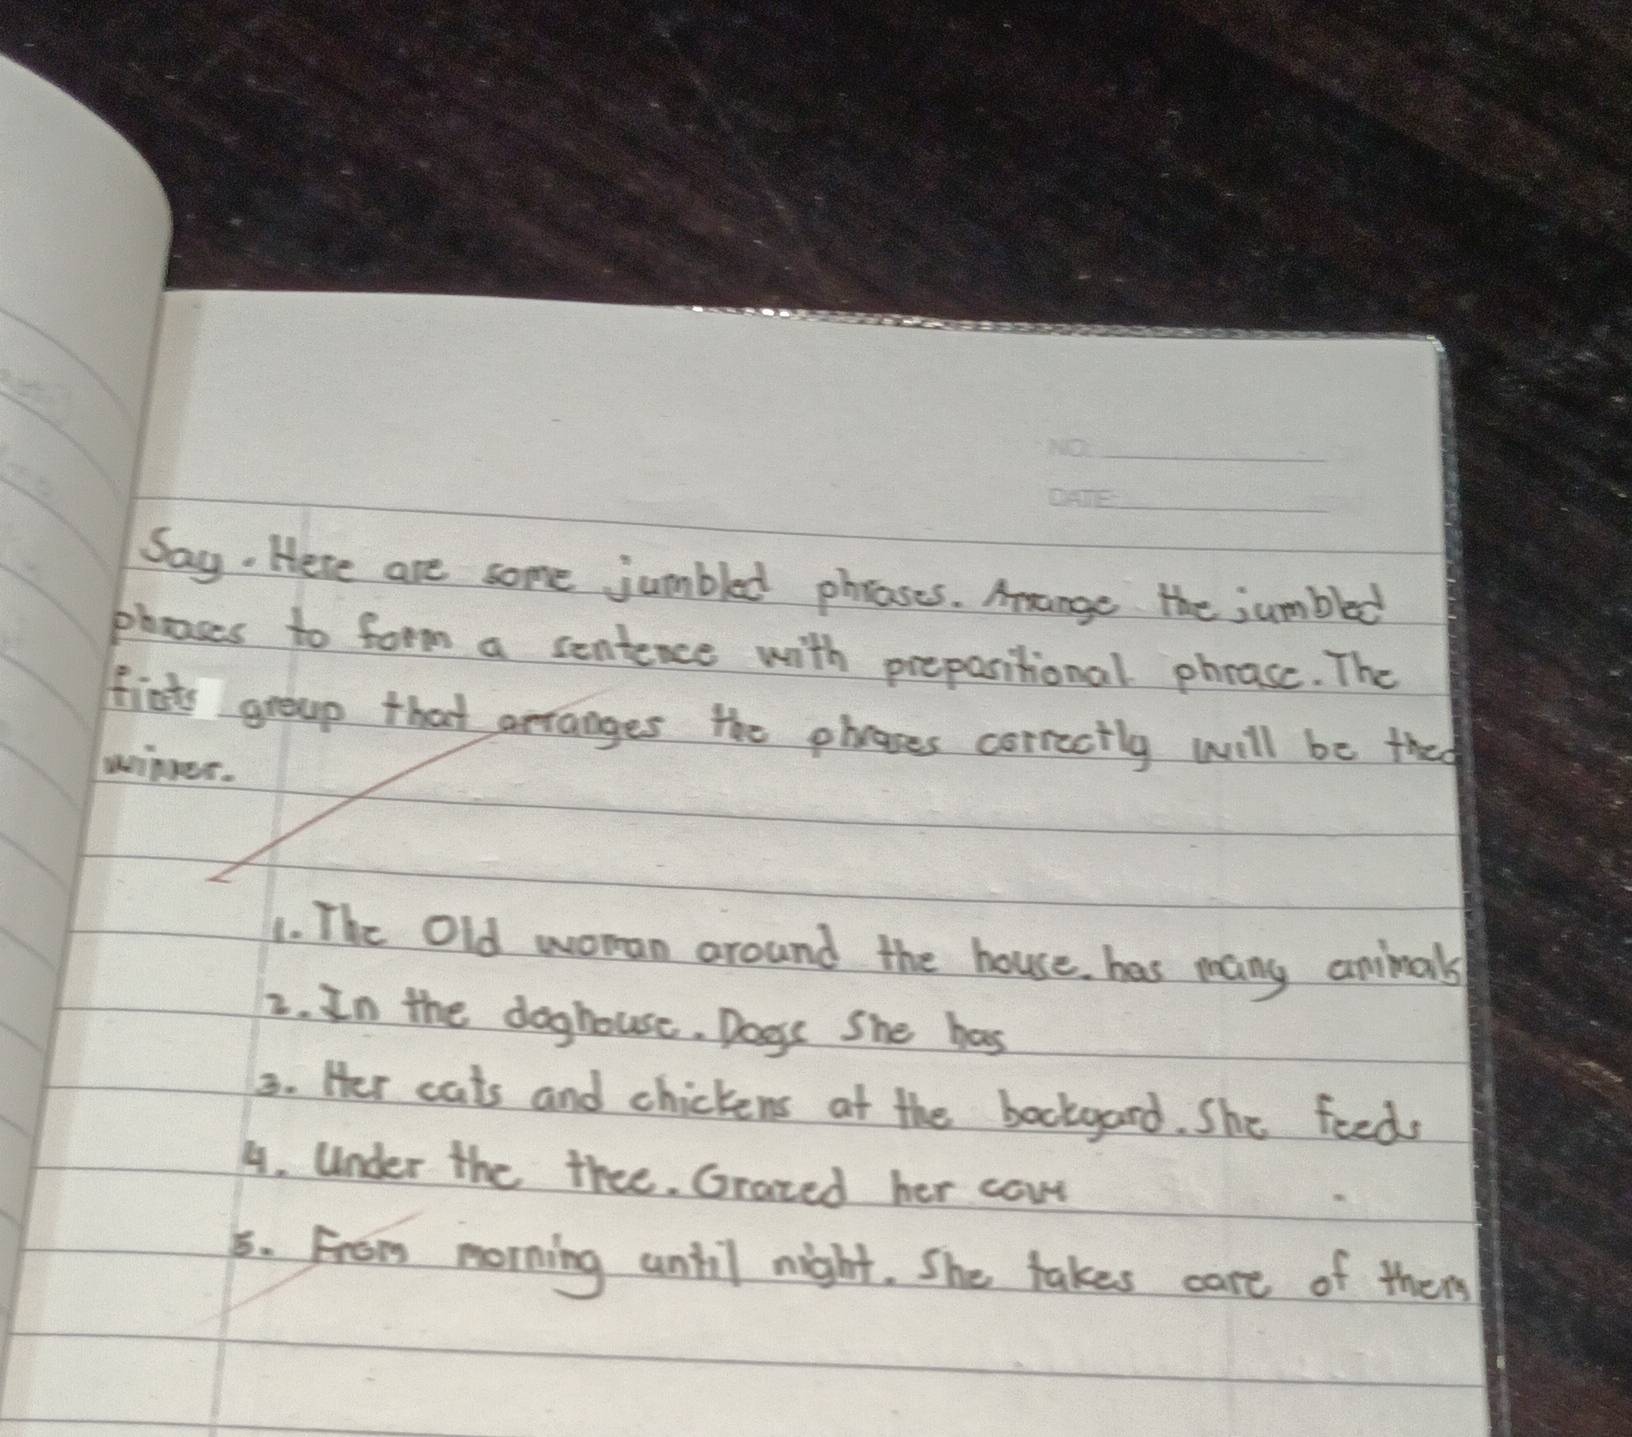 NO:
DATE:
Say. Here are some jumbled phrases. Arrange the jumbled
phrases to form a sentence with prepositional phrase. The
firsts group that arranges the phrases correctly will be the
winner.
1. The Old woman around the house. has many animals
2. In the doghouse. Dogs She has
3. Her cats and chickens at the backyard. She feeds
4. Under the thee. Grazed her cow
5. From morning until night. She takes care of them